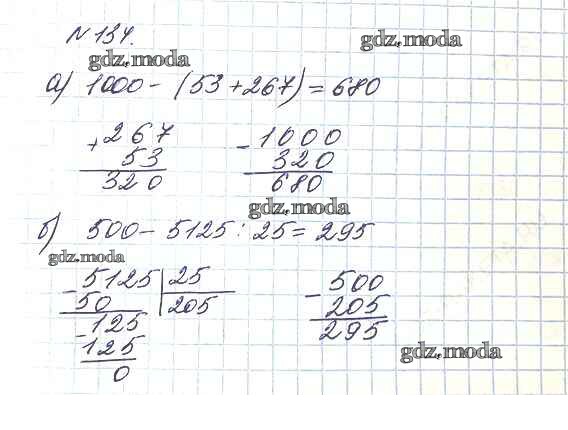 N 134.
gdz.moda
gdz.moda
а) 1000 - (53 + 267) = 680
+ 267
53
320
- 1000
320
680
gdz.moda
б) 500 - 5125 : 25 = 295
gdz.moda
- 5125 | 25
50 205
- 125
125
0
- 500
205
295
gdz.moda